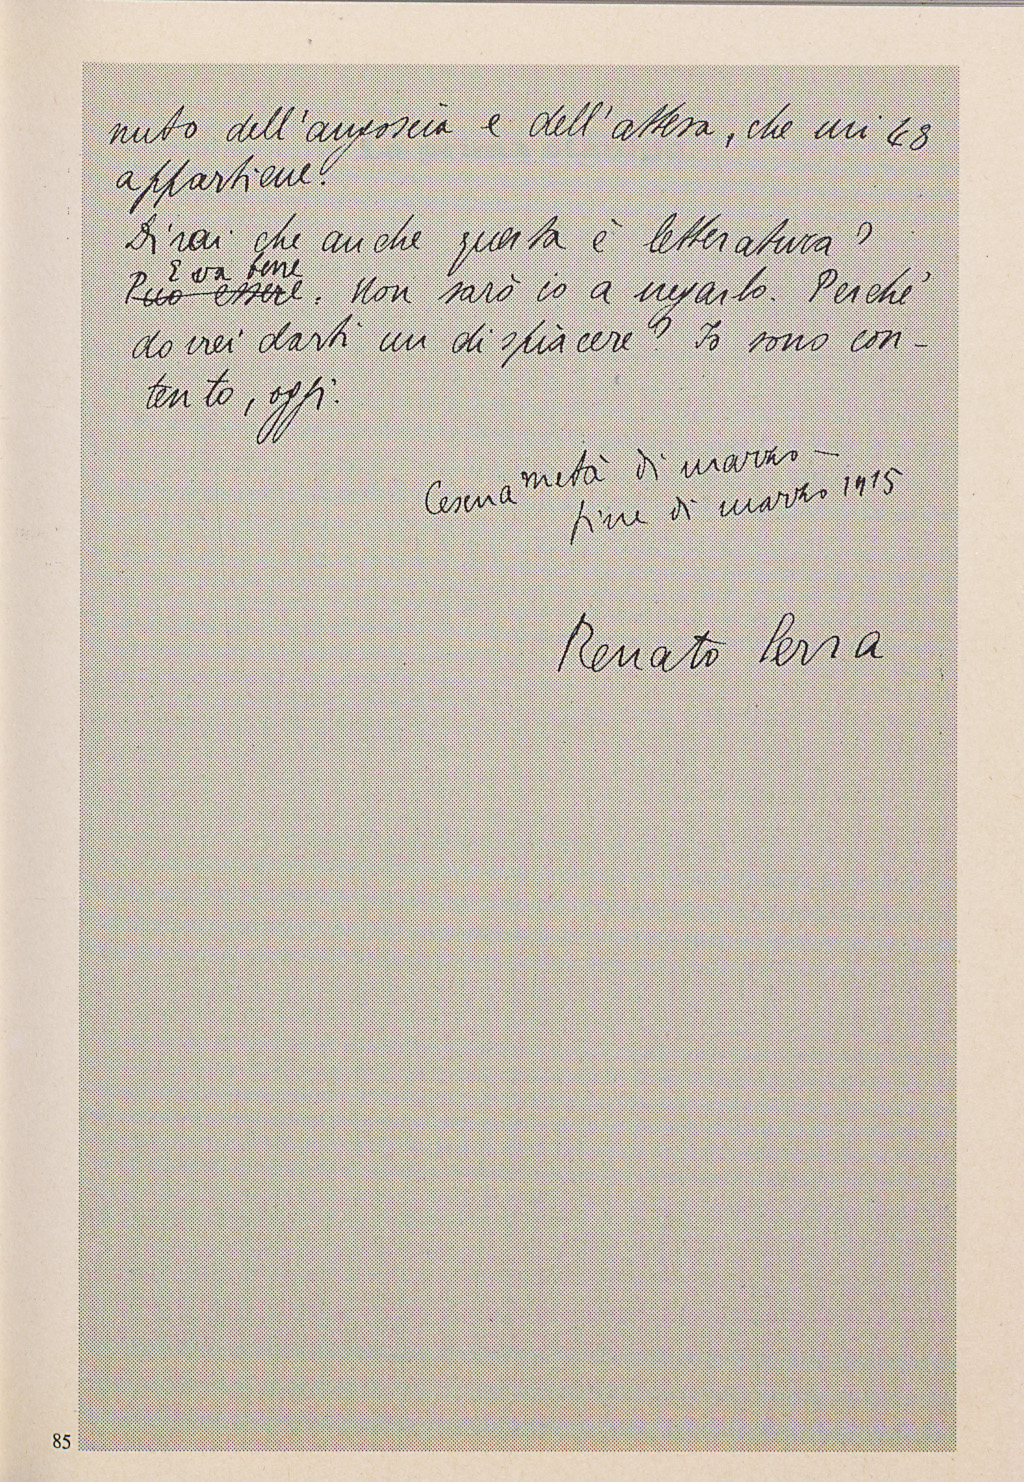 nuto dell'angoscia e dell'attesa, che mi 48
appartiene.
Dirai che anche questa è letteratura?
E va bene
Può essere. Non sarò io a negarlo. Perché
dovrei darti un dispiacere? Io sono con-
tento, oggi.
Cesena metà di marzo -
fine di marzo 1915
Renato Serra
85